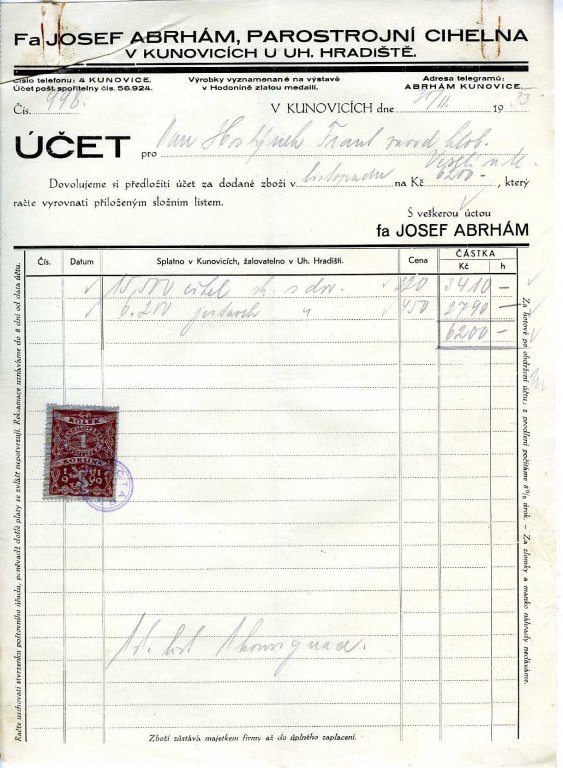 Fa JOSEF ABRHÁM, PAROSTROJNÍ CIHELNA
V KUNOVICÍCH U UH. HRADIŠTĚ.
Číslo telefonu: 4 KUNOVICE.
Účet pošt. spořitelny čís. 56.924.
Výrobky vyznamenané na výstavě
v Hodoníně zlatou medailí.
Adresa telegramů:
ABRHÁM KUNOVICE.
Čís. 998.
V KUNOVICÍCH dne 1935
ÚČET pro Pan
Dovolujeme si předložiti účet za dodané zboží v listopadu na Kč 6200 -, který
račte vyrovnati přiloženým složním listem.
S veškerou úctou
fa JOSEF ABRHÁM
Čís. Datum Splatno v Kunovicích, žalovatelno v Uh. Hradišti. Cena ČÁSTKA
Kč h
15,500 cihel 220 3410 -
6.200 " 450 2790 -
6200 -
KOLEK
1
Račte uschovati stvrzenku poštovního úřadu, poněvadž došlé platy se zvlášť nepotvrzují. Reklamace uznáváme do 8 dní od data účtu.
Za hotové po obdržení účtu; z prodlení počítáme 8% úrok. - Za zlomky a manko náhrady nedáváme.
Zboží zůstává majetkem firmy až do úplného zaplacení.